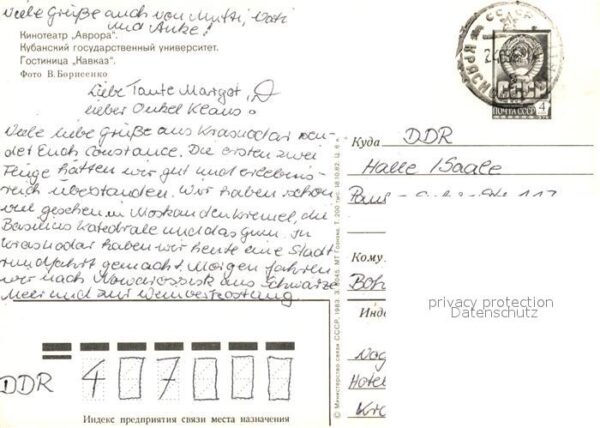 Viele Grüße auch von Mutti, Vati
und Anke!
Кинотеатр „Аврора".
Кубанский государственный университет.
Гостиница „Кавказ".
Фото В. Борисенко
Liebe Tante Margot,
lieber Onkel Klaus!
Viele liebe Grüße aus Krasnodar sen-
det Euch Constance. Die ersten zwei
Flüge hätten wir gut und erlebnis-
reich überstanden. Wir haben schon
viel gesehen in Moskau den Kreml, die
Basilius Katedrale und das Gum. In
Krasnodar haben wir heute eine Stadt
rundfahrt gemacht. Morgen fahren
wir nach Noworossisk ans Schwarze
Meer und zur Weinverkostung
ПОЧТА СССР
4
Куда DDR
Halle / Saale
Кому
Инде
Hotel
privacy protection
Datenschutz
© Министерство связи СССР, 1983.
DDR 4 0 7 0 0 0
Индекс предприятия связи места назначения